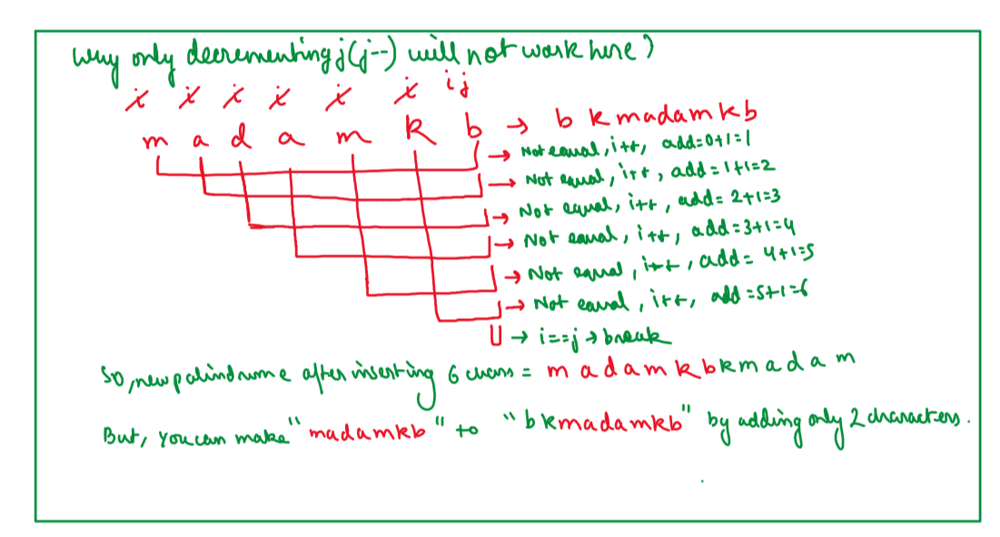 Why only decrementing j(j--) will not work here?
i i i i i i i j
m a d a m k b → b k madamkb
→ Not equal, i++, add=0+1=1
→ Not equal, i++, add=1+1=2
→ Not equal, i++, add=2+1=3
→ Not equal, i++, add=3+1=4
→ Not equal, i++, add=4+1=5
→ Not equal, i++, add=5+1=6
→ i==j → break
So, new palindrome after inserting 6 chars = m a d a m k b k m a d a m
But, you can make "madamkb" to "bkmadamkb" by adding only 2 characters.